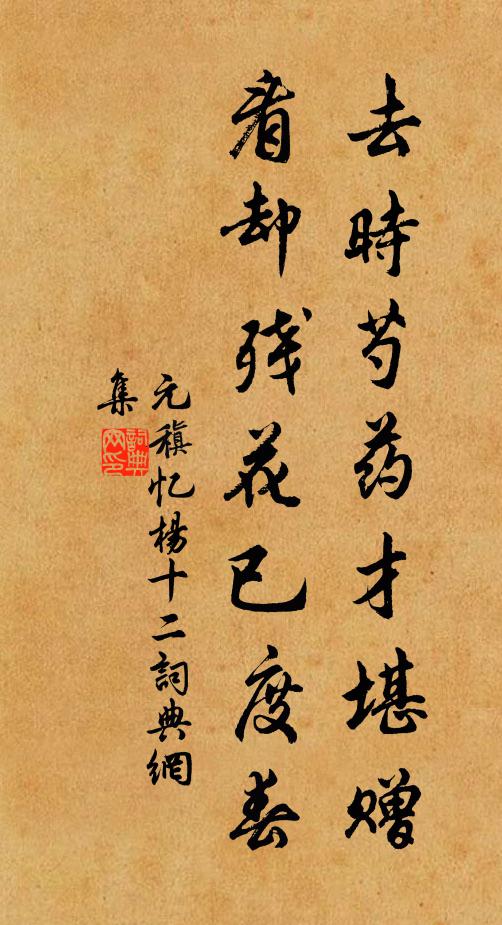 去時芍药才堪赠
看却残花已度春
元稹忆楊十二詞典網
集
詞典
网印